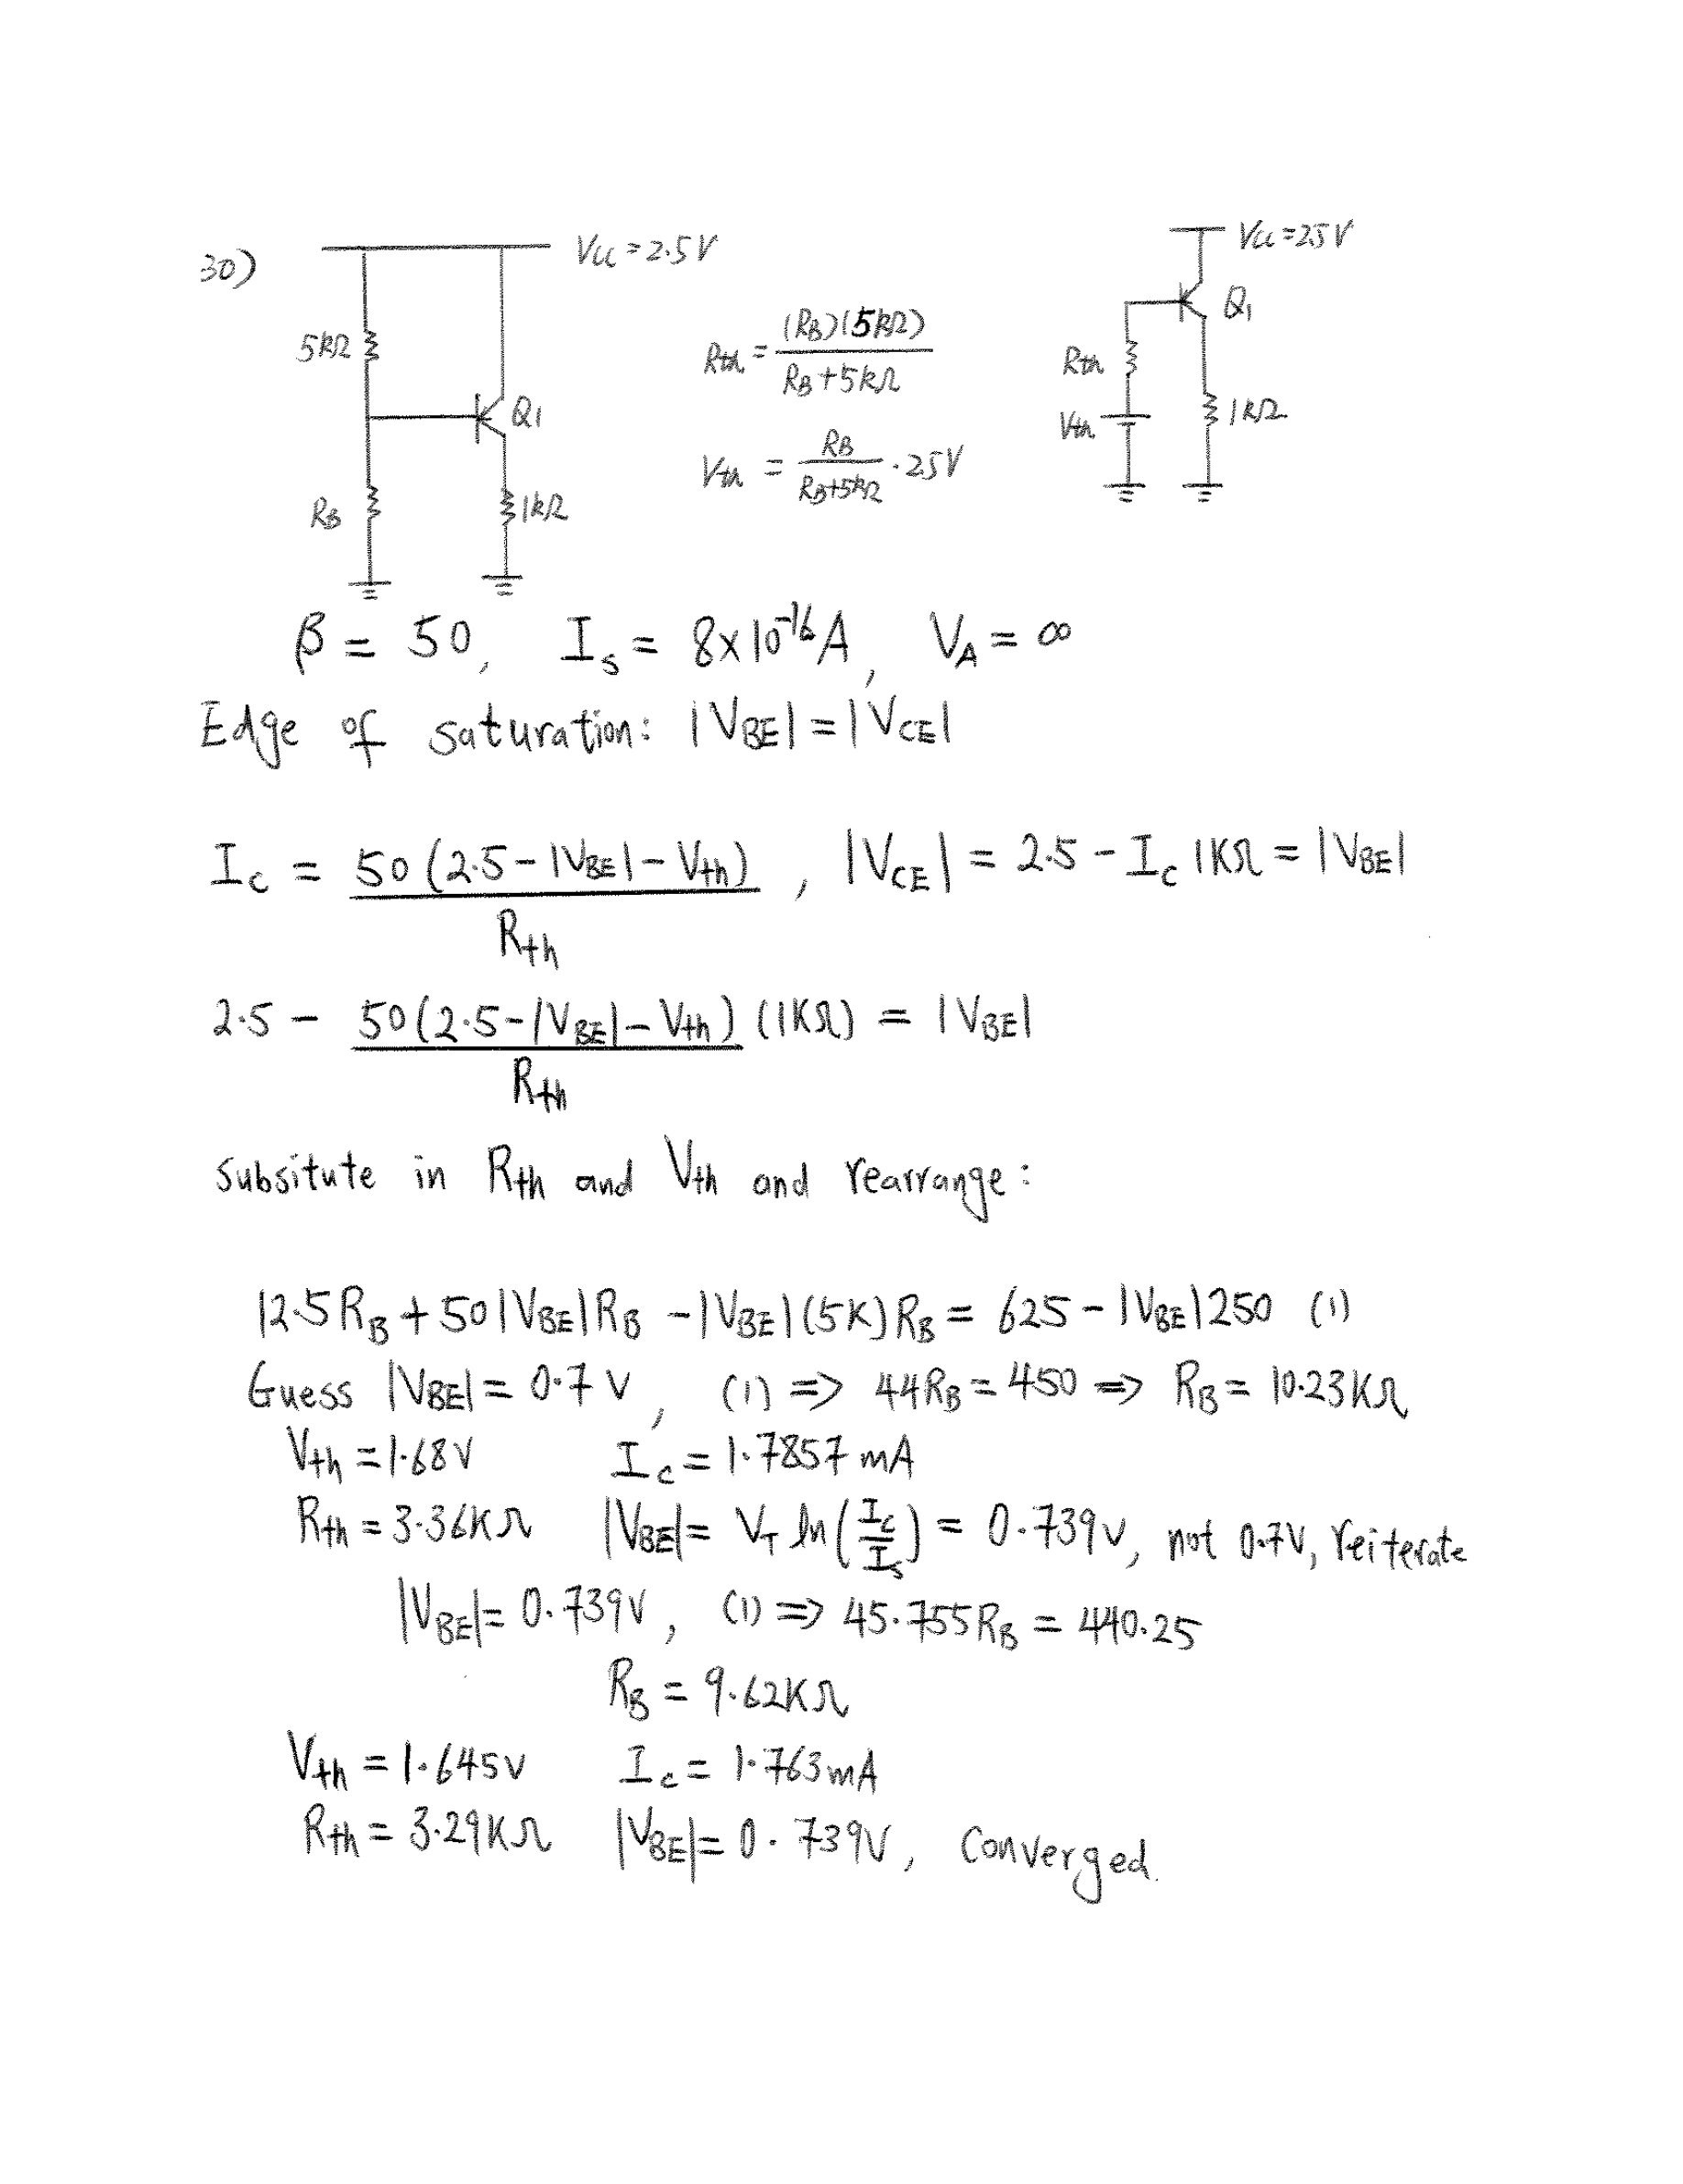 30)
Vcc = 2.5 V
5kΩ
Q1
RB
1kΩ
Rth = (RB)(5kΩ) / RB + 5kΩ
Vth = RB / RB+5kΩ · 25V
Vcc = 25V
Q1
Rth
Vth
1kΩ
β = 50, Is = 8x10^-16 A, VA = ∞
Edge of saturation: |VBE| = |VCE|
Ic = 50(2.5 - |VBE| - Vth) / Rth , |VCE| = 2.5 - Ic 1KΩ = |VBE|
2.5 - 50(2.5-|VBE|-Vth) / Rth (1KΩ) = |VBE|
Subsitute in Rth and Vth and rearrange:
12.5RB + 50|VBE|RB - |VBE|(5K)RB = 625 - |VBE|250 (1)
Guess |VBE| = 0.7 V, (1) => 44RB = 450 => RB = 10.23KΩ
Vth = 1.68V Ic = 1.7857 mA
Rth = 3.36KΩ |VBE| = VT ln(Ic/Is) = 0.739V, not 0.7V, reiterate
|VBE| = 0.739V, (1) => 45.755RB = 440.25
RB = 9.62KΩ
Vth = 1.645V Ic = 1.763mA
Rth = 3.29KΩ |VBE| = 0.739V, Converged.